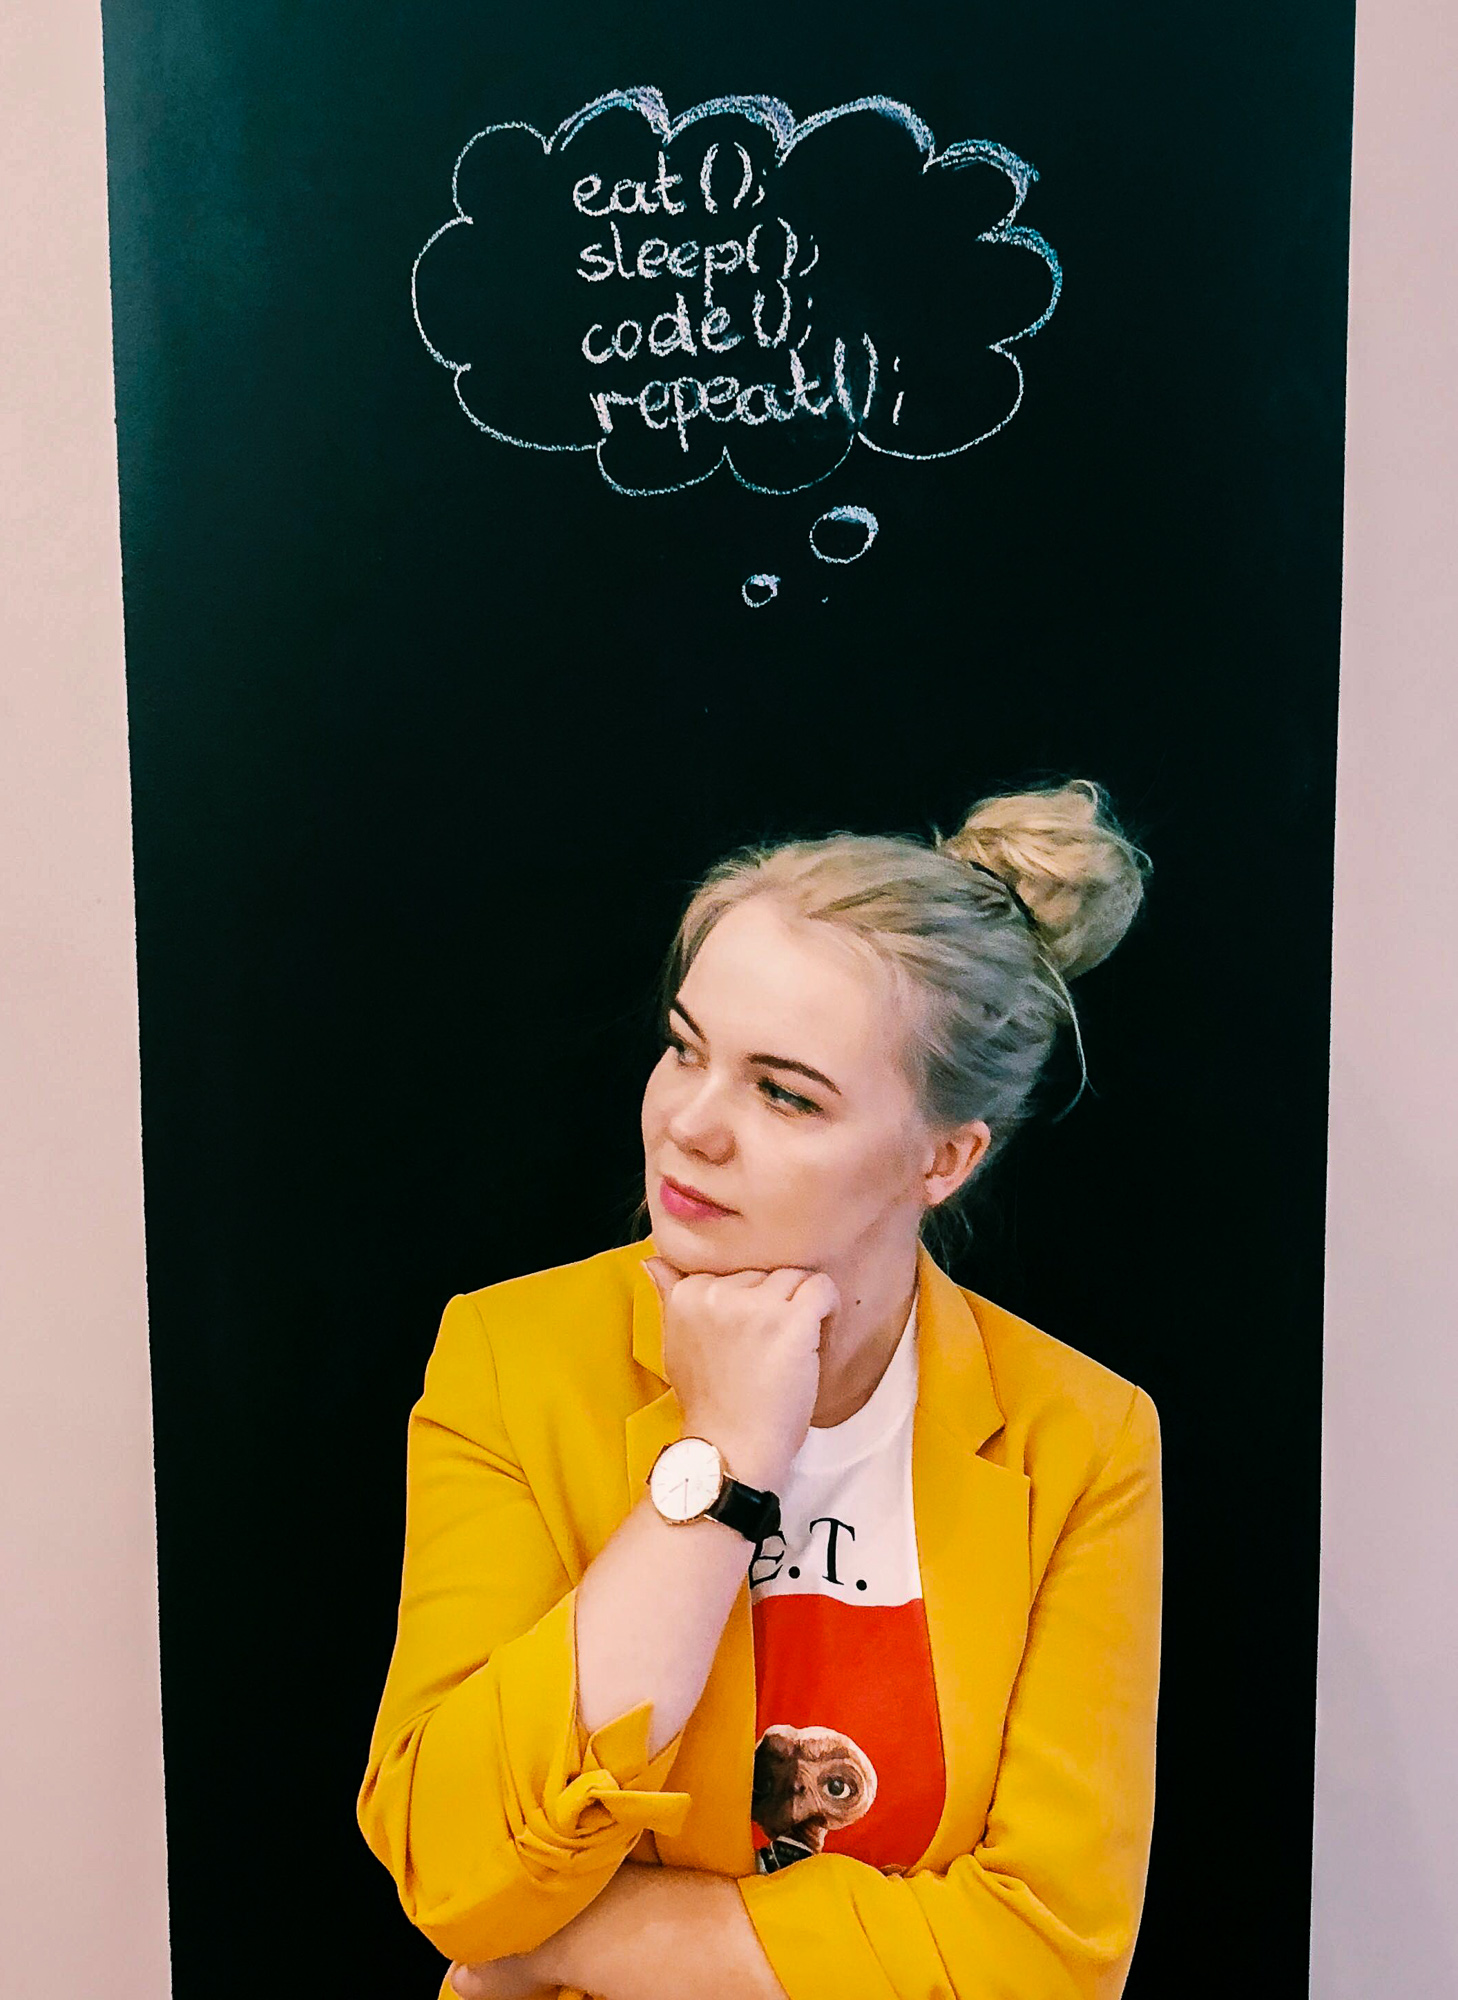 eat();
sleep();
code();
repeat();
E.T.